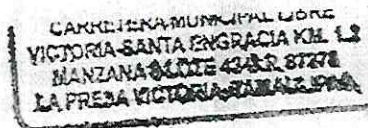 CARRETERA MUNICIPAL LIBRE
VICTORIA-SANTA ENGRACIA KM. 1.2
MANZANA LOTE 87276
LA PRESA VICTORIA, TAMAULIPAS